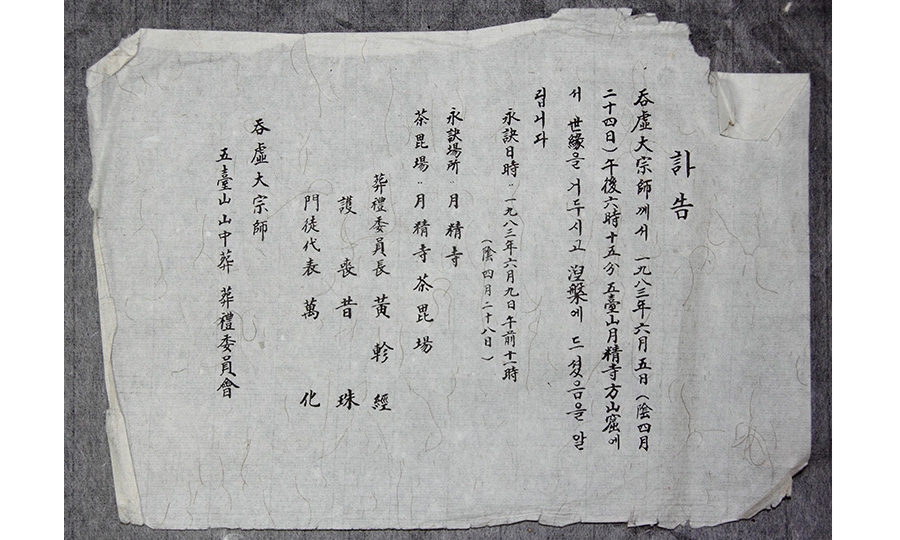 訃告
呑虛大宗師께서 一九八三年六月五日(陰四月
二十四日) 午後六時十五分 五臺山月精寺方山窟에
서 世緣을 거두시고 涅槃에 드셨음을 알
립니다
永訣日時: 一九八三年六月九日午前十一時
(陰 四月二十八日)
永訣場所: 月精寺
茶毘場: 月精寺茶毘場
葬禮委員長 黃軫經
護喪 昔珠
門徒代表 萬化
呑虛大宗師
五臺山 山中葬 葬禮委員會